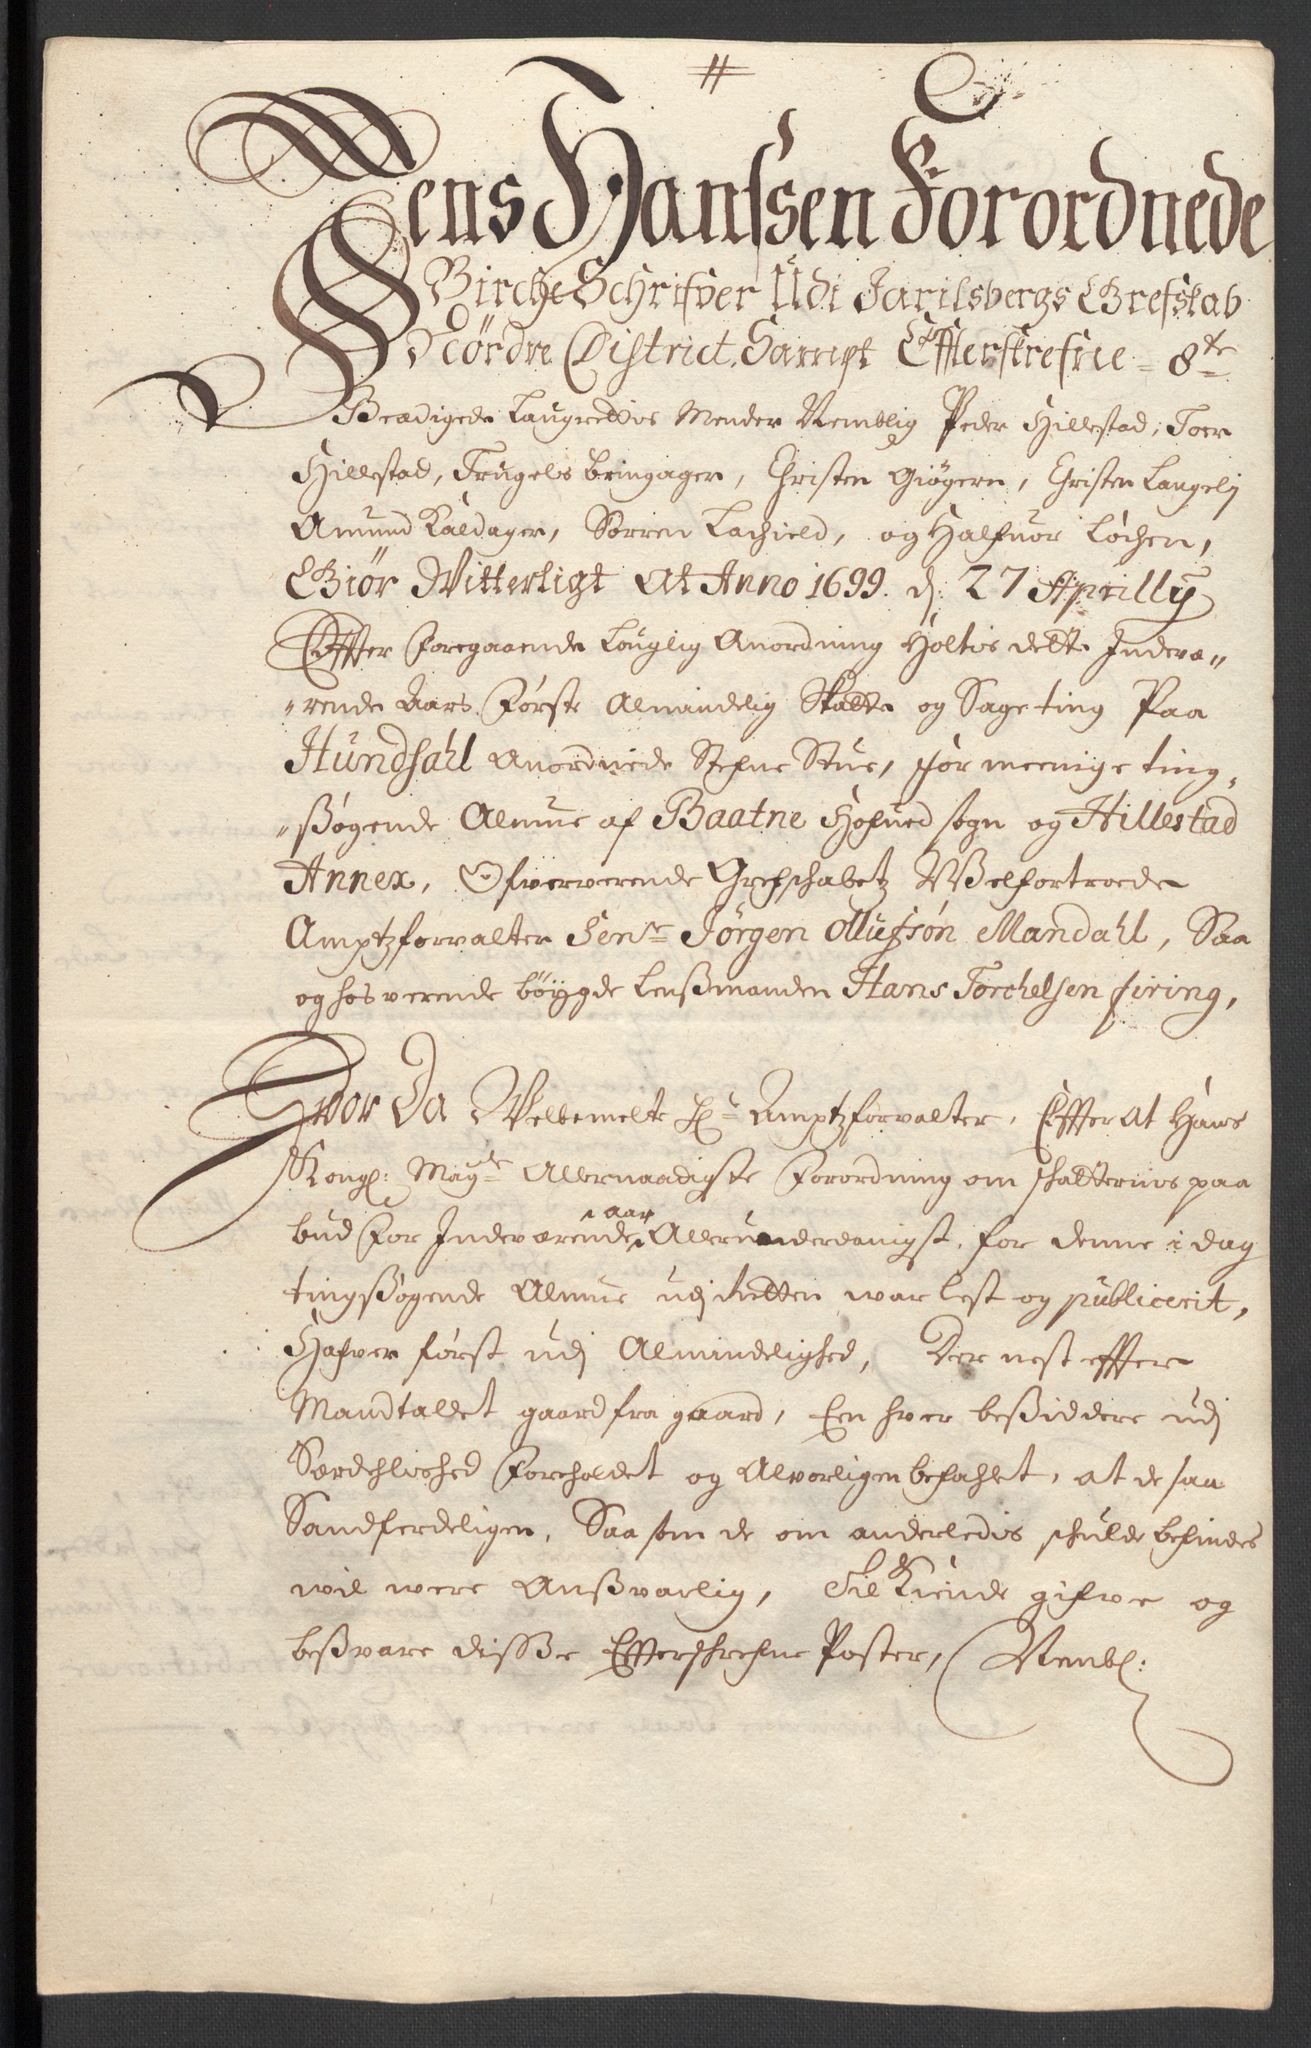 #
Jens Hanssen Forordnede
Birche Schrifver Udi Jarilsbergs Grefskab
Nördre District, Sampt Effterskrefne 8te
Beædigede Laugrettis Mender Nemblig Peder Hillestad, Toer
Hillestad, Trugels Bringager, Christen Giögern, Christen Langelj
Amund Kaldager, Sörren Lachield, og Halfuor Löchen,
Giör Witterligt At Anno 1699. d: 27 Aprilly
Effter Foregaaende Louglig Anordning Holtis dette Indevæ„
„rende Aars Første Almindelig Skatte og Sage ting Paa
Hundsahl Anordnede Stefne Stue, for meenige ting„
„ßøgende Almue af Baatne Hofued sogn og Hillestad
Annex, Ofververende Grefschabetz Wßelfortroede
Amptzforvalter Senr Jörgen Ollufsön Mandahl, Saa
og hos verende böÿgde Lenßmanden Hans Torchelsen firing,
Hvor Da Welbemelte Hr Amptzforvalter, Effter at Hans
Kongl: Maytz Allernaadigste Forordning om skatternis paa
bud for Indeværende aar Allerunderdanigst, for denne i dag
tingßøgende Almue udj Retten war lest og publicerit,
Hafver først udj Almindelighed, Der nest effter
Mandtallet gaard fra gaard, En hver beßiddere udj
Særdehlished Foreholdet og Alvorligen befahlet, at de saa
Sandferdeligen, Saa som de om anderledis schulde befindes
wil were Anßvarlig, Til Kiende gifve og
beßvare disße Efferschrefne Poster, Nembl: